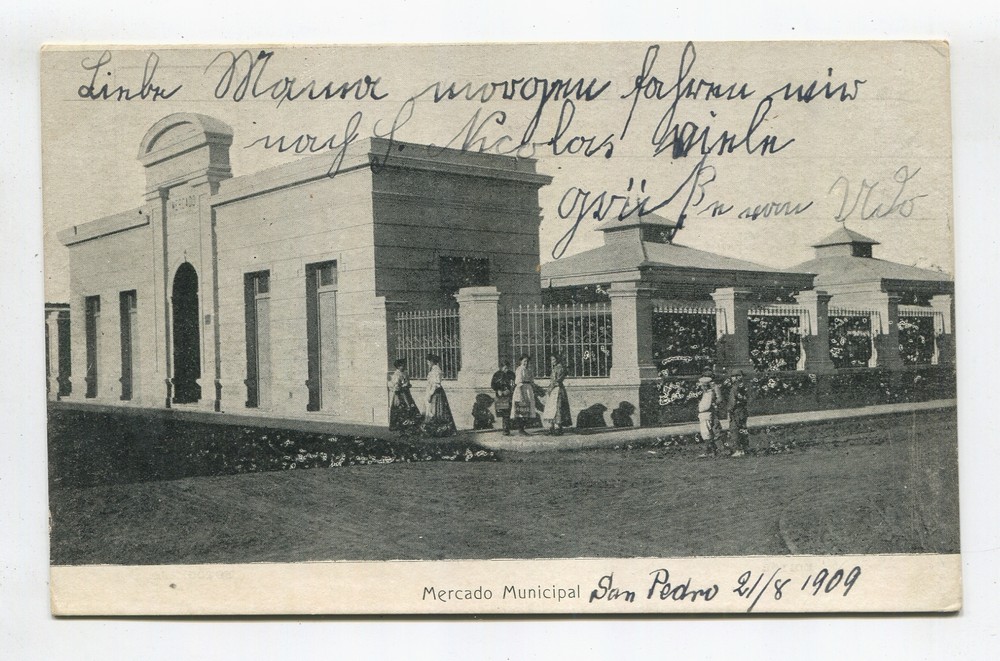 Liebe Mama morgen fahren wir
nach S. Nicolas viele
grüße von Udo
MERCADO
Mercado Municipal San Pedro 21/8 1909